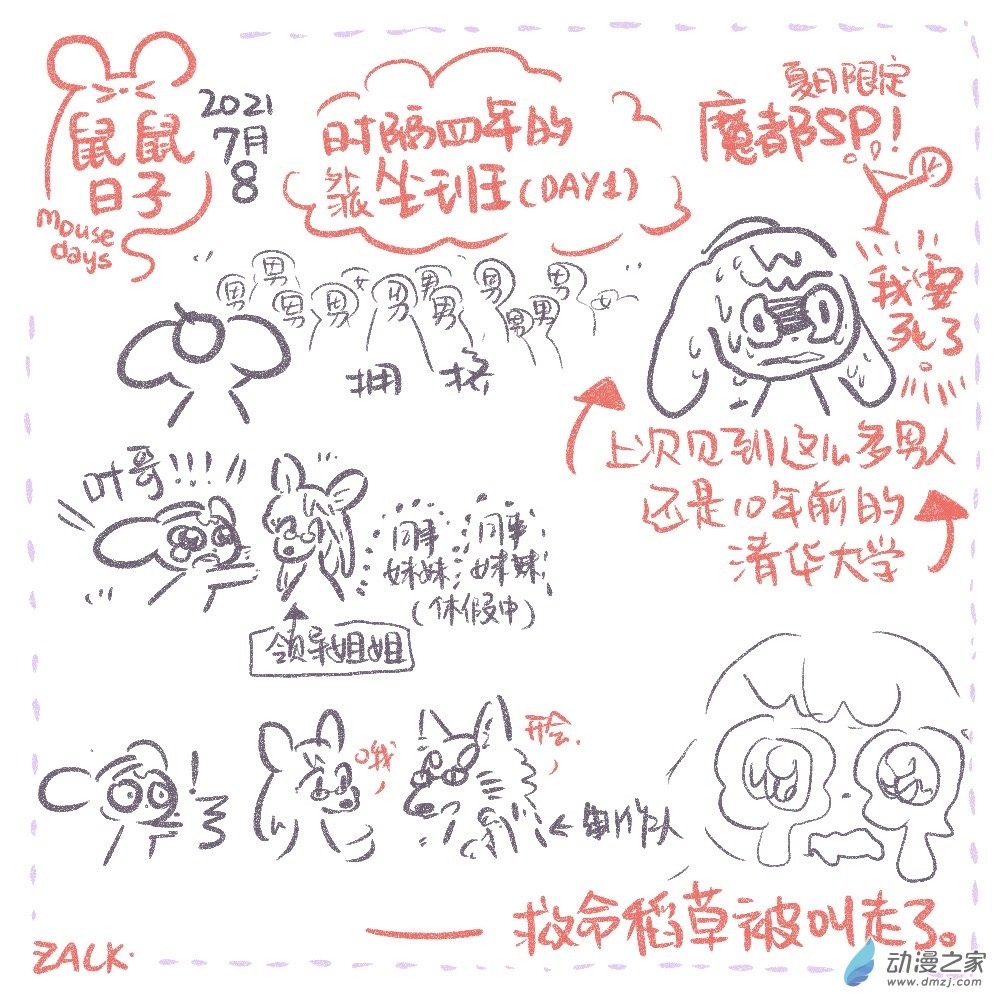 鼠鼠
日子
mouse
days
2021
7月
8
时隔四年的
坐班(DAY1)
夏日限定
魔都SP!
男 男 男 男 女 男 男 男 男 男 男 男 女
拥挤
我要
死了
上次见到这么多男人
还是10年前的
清华大学
叶哥!!!
同事
妹妹
同事
妹妹
(休假中)
领导姐姐
!
哦,
开会.
制作人
——救命稻草被叫走了。
ZACK.
动漫之家
www.dmzj.com